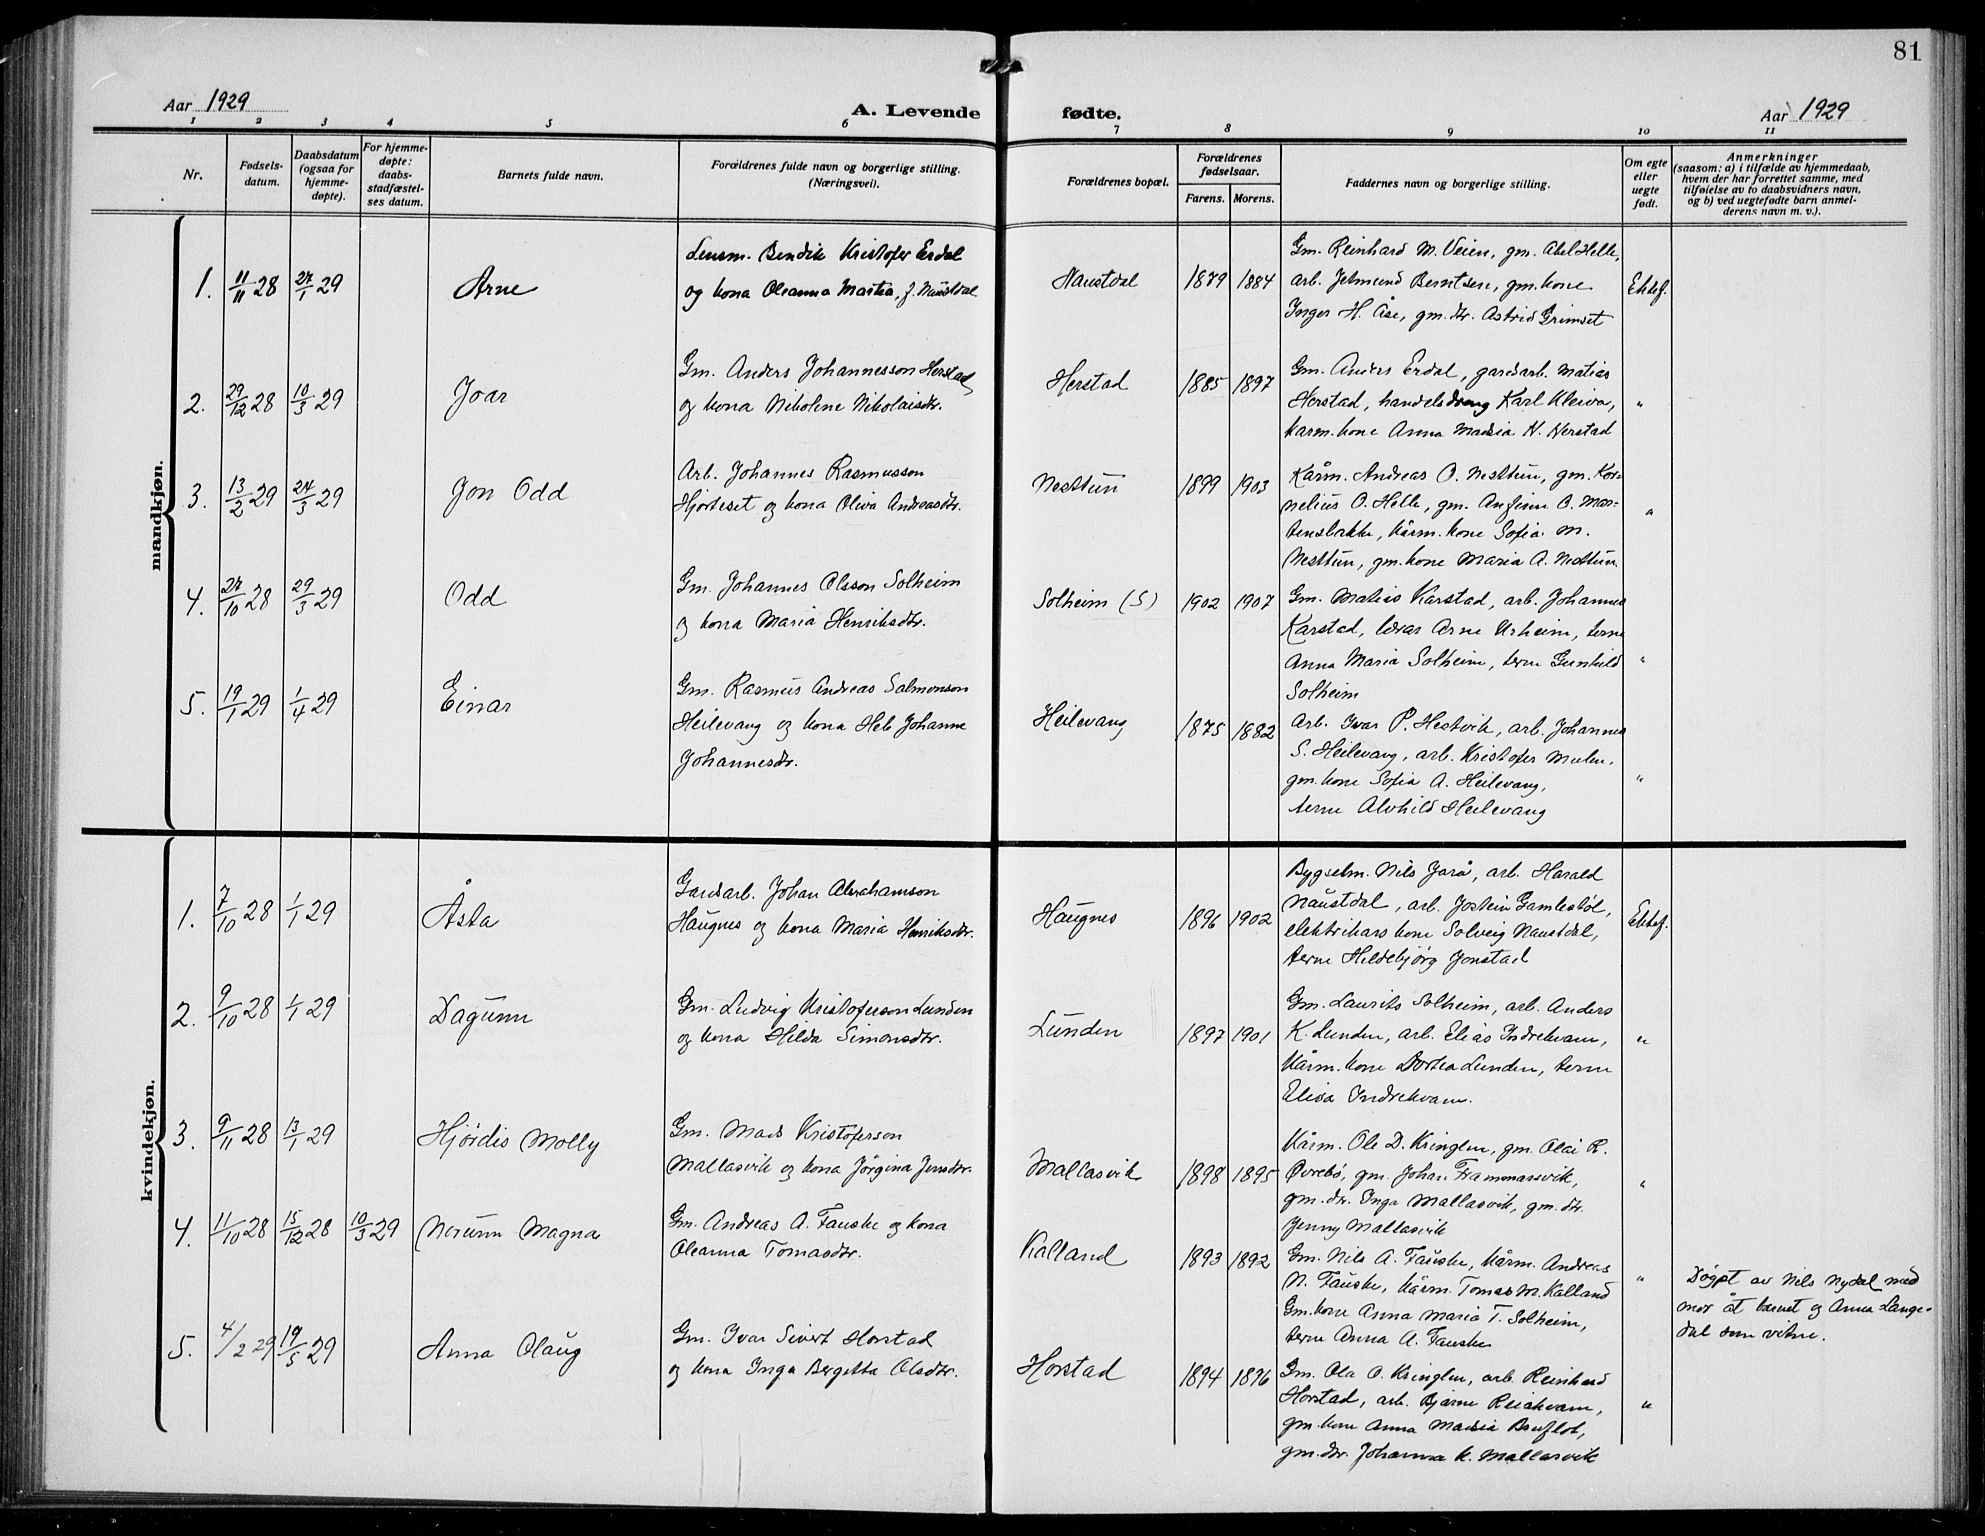 81
Aar 1929
A. Levende fødte.
Aar 1929
1 2 3 4 5 6 7 8 9 10 11
Nr.
Fødsels-
datum.
Daabsdatum
(ogsaa for
hjemme-
døpte).
For hjemme-
døpte:
daabs-
stadfæstel-
ses datum.
Barnets fulde navn.
Forældrenes fulde navn og borgerlige stilling.
(Næringsvei).
Forældrenes bopæl.
Forældrenes
fødselsaar.
Farens. Morens.
Faddernes navn og borgerlige stilling.
Om egte
eller
uegte
født.
Anmerkninger
(saasom: a) i tilfælde av hjemmedaab,
hvem der har forrettet samme, med
tilføielse av to daabsvidners navn,
og b) ved uegtefødte barn anmel-
derens navn m. v.).
mandkjøn.
1. 11/11 28 27/1 29 Arne
Lensm. Bendik Kristofer Erdal
og kona Oleanna Martia, f. Naustdal
Naustdal 1879 1884
Gm. Reinhard M. Veien, gm. Abel Helle,
arb. Jetmund Berntsen, gm. kone
Inger H. Åse, gm. dtr. Astrid Grimset
Ektef.
2. 29/12 28 10/3 29 Joar
Gm. Anders Johannesson Herstad
og kona Nikoline Nikolaisdtr.
Herstad 1885 1897
Gm. Anders Erdal, gardsarb. Matias
Herstad, handelsdreng Karl Kleiva,
karm. kone Anna Madsia N. Herstad
"
3. 13/2 29 24/3 29 Jon Odd
Arb. Johannes Rasmusson
Hjorteset og kona Oliva Andreasdtr.
Nesttun 1899 1903
Kårm. Andreas O. Nesttun, gm. Kor-
nelius O. Helle, gm. Anfinn O. Mar-
tensbakke, kårm. kone Sofia M.
Nesttun, gm. kone Maria A. Nesttun.
"
4. 27/10 28 29/3 29 Odd
Gm. Johannes Olsson Solheim
og kona Maria Henriksdtr.
Solheim (S) 1902 1907
Gm. Matias Karstad, arb. Johannes
Karstad, lærar Arne Urheim, terne
Anna Maria Solheim, terne Gunhild
Solheim
"
5. 19/1 29 1/4 29 Einar
Gm. Rasmus Andreas Salmonson
Heilevang og kona Hele Johanne
Johannesdtr.
Heilevang 1875 1882
Arb. Ivar P. Hestvik, arb. Johannes
S. Heilevang, arb. Kristofer Mulen,
gm. kone Sofia A. Heilevang,
terne Alvhild Heilevang
"
kvindekjøn.
1. 7/10 28 1/1 29 Åsta
Gardsarb. Johan Abrahamson
Haugnes og kona Maria Henriksdtr.
Haugnes 1896 1902
Bygselm. Nils Jarå, arb. Harald
Naustdal, arb. Jostein Gamlestøl,
elektrikars kone Solveig Naustdal,
terne Hildebjørg Jonstad
Ektef.
2. 9/10 28 1/1 29 Dagunn
Gm. Ludvig Kristoferson Lunden
og kona Hilda Simonsdtr.
Lunden 1897 1901
Gm. Laurits Solheim, arb. Anders
K. Lunden, arb. Elias Indrekvam,
Kårm. kone Dortea Lunden, terne
Elisa Indrekvam.
"
3. 9/11 28 13/1 29 Hjørdis Molly
Gm. Mads Kristoferson
Mallasvik og kona Jørgina Jensdtr.
Mallasvik 1898 1895
Kårm. Ole D. Kringlen, gm. Olai R.
Øvrebø, gm. Johan Frammarsvik,
gm. dtr. Inga Mallasvik, gm. dtr.
Jenny Mallasvik
"
4. 11/10 28 15/12 28 10/3 29 Norunn Magna
Gm. Andreas A. Fauske og kona
Oleanna Tomasdtr.
Kalland 1893 1892
Gm. Nils A. Fauske, Kårm. Andreas
N. Fauske, kårm. Tomas M. Kalland
Gm. kone Anna Maria T. Solheim,
terne Anna A. Fauske
"
Døypt av Nils Nydal med
mor åt barnet og Anna Lange-
dal som vitne.
5. 4/2 29 19/5 29 Anna Olaug
Gm. Ivar Sivert Horstad
og kona Inga Bergitta Olsdtr.
Horstad 1894 1896
Gm. Ola O. Kringlen, arb. Reinhard
Horstad, arb. Bjarne Reiakvam,
gm. kone Anna Madsia Bruflot,
gm. dtr. Johanna K. Mallasvik
"